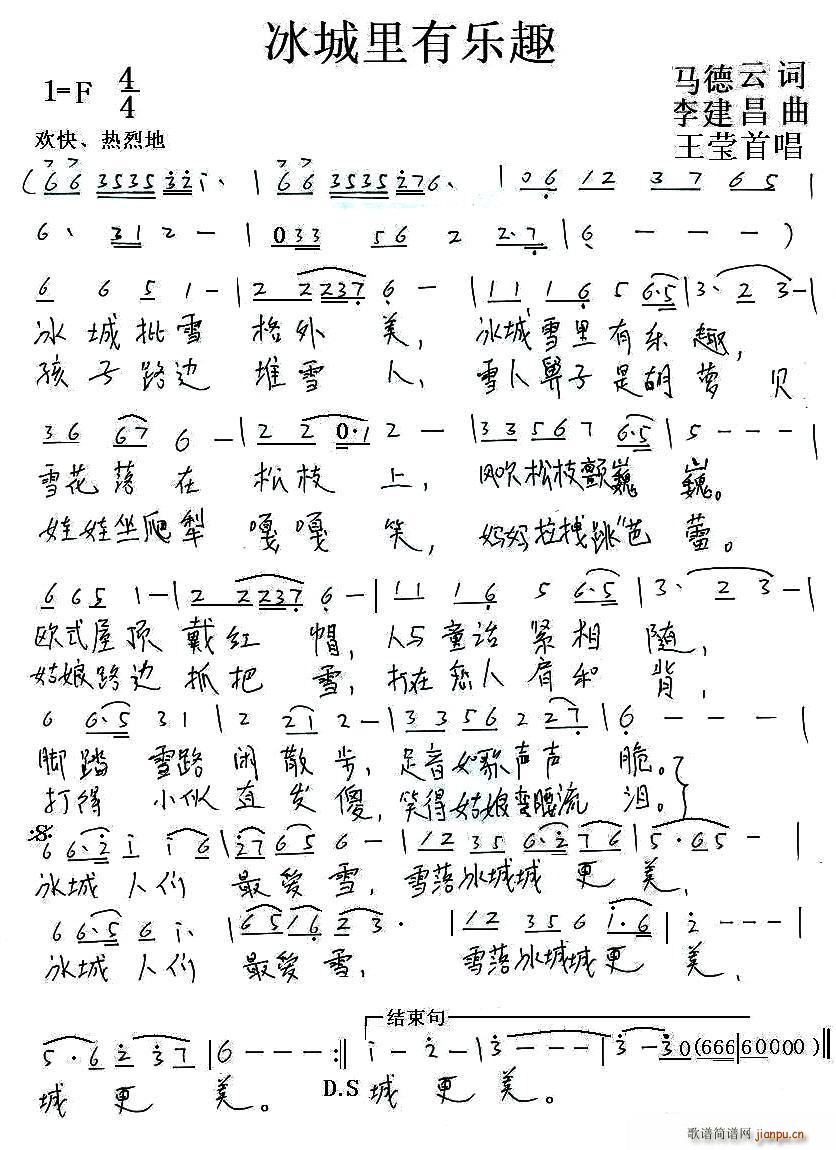 冰城里有乐趣
1=F 4/4
马德云 词
李建昌 曲
王莹首唱
欢快、热烈地
(66 3535 32 i、 | 66 3535 276、 | 06 12 37 65 |
6、 31 2 - | 033 56 2 2·7 | 6 - - - )
6 65 1 - | 2 2237 6 - | 11 16 5 6·5 | 3、 2 3 - |
冰城批雪格外美，冰城雪里有乐趣，
孩子路边堆雪人，雪人鼻子是胡萝贝
36 67 6 - | 2 2 0·1 2 - | 33567 6·5 | 5 - - - |
雪花落在松枝上，风吹松枝颤巍巍。
娃娃坐爬犁嘎嘎笑，妈妈拉拽跳"芭蕾。
6 65 1 - | 2 2237 6 - | 11 16 5 6·5 | 3、 2 3 - |
欧式屋顶戴红帽，人与童话紧相随，
姑娘路边抓把雪，打在恋人肩和背，
6 6·5 31 | 2 2i 2 - | 33 56 2 27 | 6 - - - |
脚踏雪路闲散步，足音如歌声声脆。
打得小伙直发傻，笑得姑娘弯腰流泪。
6 6·2 i i6 | 27 65 6 - | 12 35 6·2 76 | 5·65 - |
冰城人们最爱雪，雪落冰城城更美，
6 6·5 6 i、 | 65 16 2 3· | 12 356 i·6 | 2 - - - |
冰城人们最爱雪，雪落冰城城更美，
5·6 2 37 | 6 - - - :|| i - 2 - | 3 - - - | 3 - 30(666|60000)||
结束句
城更美。 D.S 城更美。
歌谱简谱网
jianpu.cn